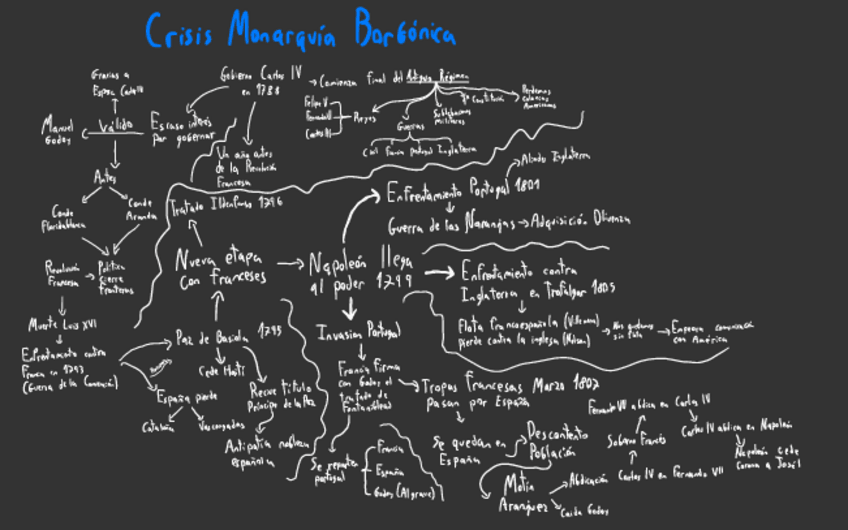 Crisis Monarquía Borbónica
Gracias a
Esposa Carlos IV
Manuel
Godoy
Valido
Escaso interés
por gobernar
Gobierno Carlos IV
en 1788
Comienza final del Antiguo Régimen
Felipe V
Fernando VI
Carlos III
Reyes
Guerras
Civil Francia Portugal Inglaterra
Sublevaciones
militares
1ª Constitución
Perdemos
colonias
Americanas
Un año antes
de la Revolución
Francesa
Antes
Conde
Floridablanca
Conde
Aranda
Revolución
Francesa
Política
cierre
fronteras
Muerte Luis XVI
Enfrentamiento contra
Francia en 1793
(Guerra de la Convención)
Tratado Ildefonso 1796
Nueva etapa
con franceses
Paz de Basilea 1795
Cede Haití
Recibe título
Príncipe de la Paz
Antipatía nobleza
española
España pierde
Cataluña
Vascongadas
Napoleón llega
al poder 1799
Enfrentamiento Portugal 1801
Aliado Inglaterra
Guerra de las Naranjas
Adquisición Olivenza
Enfrentamiento contra
Inglaterra en Trafalgar 1805
Flota francoespañola (Villeneuve)
pierde contra la inglesa (Nelson)
Nos quedamos
sin flota
Empeora comunicación
con América
Invasión Portugal
Francia firma
con Godoy el
tratado de
Fontainebleau
Se reparten
portugal
Francia
España
Godoy (Algarve)
Tropas francesas Marzo 1807
pasan por España
Se quedan en
España
Descontento
Población
Motín
Aranjuez
Abdicación
Carlos IV en Fernando VII
Caída Godoy
Soborno Francés
Fernando VII abdica en Carlos IV
Carlos IV abdica en Napoleón
Napoleón cede
corona a José I